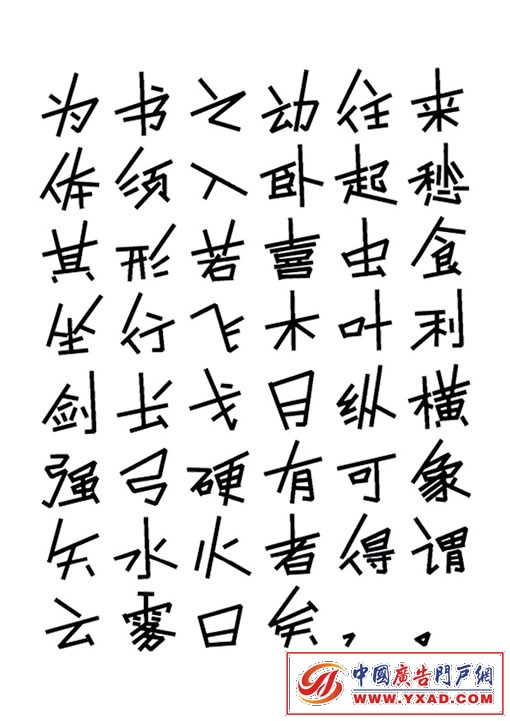 为书之动往来
体须入卧起愁
其形若喜虫食
坐行飞木叶利
剑长戈月纵横
强弓硬有可象
矢水火者得谓
云雾日矣，。
中國廣告門戶網
WWW.YXAD.COM